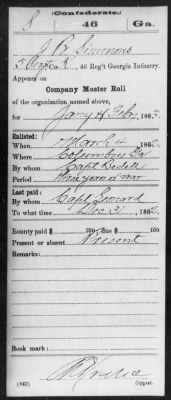 Confederate.
S 46 Ga.
J. R. Simmons
46 Reg't Georgia Infantry.
Appears on
Company Muster Roll
of the organization named above,
for Jany & Feby, 1863.
Enlisted:
When March 4, 1862.
Where Columbus Ga
By whom Capt
Period three years or war
Last paid:
By whom Capt Leonard
To what time Dec 31, 1862.
Bounty paid $ 100; due $ 100
Present or absent Present
Remarks:
Book mark:
(642) Copyist.